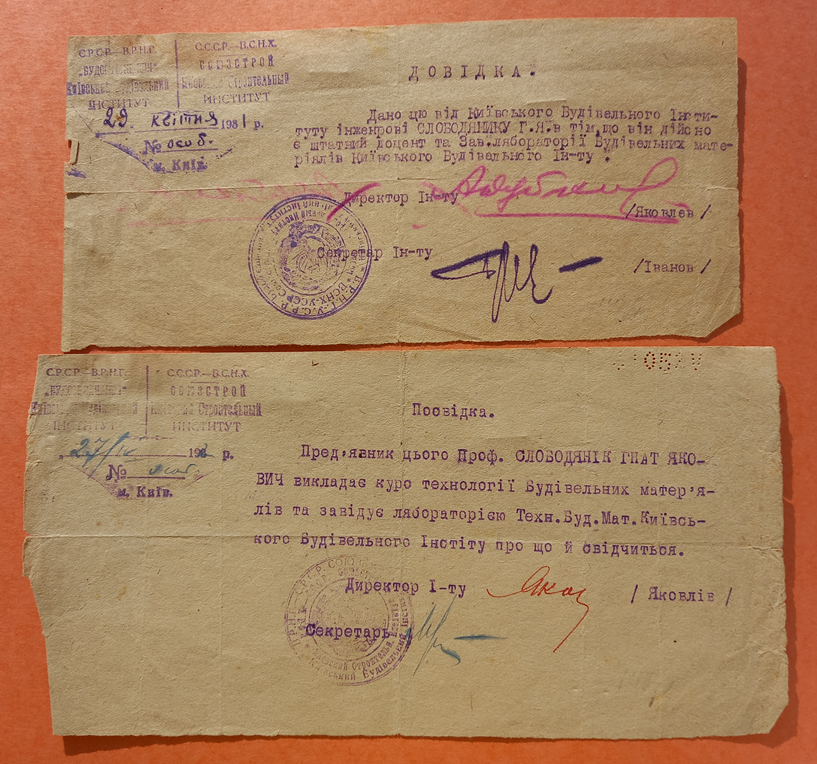 С.Р.С.Р.—В.Р.Н.Г.
Київський Будівельний
ІНСТИТУТ
29 квітня 1931 р.
№ особ.
м. Київ.
С.С.С.Р.—В.С.Н.Х.
СОЮЗСТРОЙ
Киевский Строительный
ИНСТИТУТ
ДОВІДКА.
Дано цю від Київського Будівельного Інсти-
туту інженерові СЛОБОДЯНИКУ Г.Я.в тім,що він дійсно
є штатний доцент та Зав.лябораторії Будівельних мате-
ріялів Київського Будівельного Ін-ту .
Директор Ін-ту
/Яковлев/
Секретар Ін-ту
/Іванов/
С.Р.С.Р.—В.Р.Н.Г.
Київський Будівельний
ІНСТИТУТ
27/IV 193 р.
№ особ.
м. Київ.
С.С.С.Р.—В.С.Н.Х.
СОЮЗСТРОЙ
Киевский Строительный
ИНСТИТУТ
Посвідка.
Пред,явник цього Проф. СЛОБОДЯНІК ГНАТ ЯКО-
ВИЧ викладає курс технології Будівельних матер'я-
лів та завідує лябораторією Техн.Буд.Мат.Київсь-
кого Будівельного Інстіту про що й свідчиться.
Директор І-ту
/ Яковлів /
Секретарь